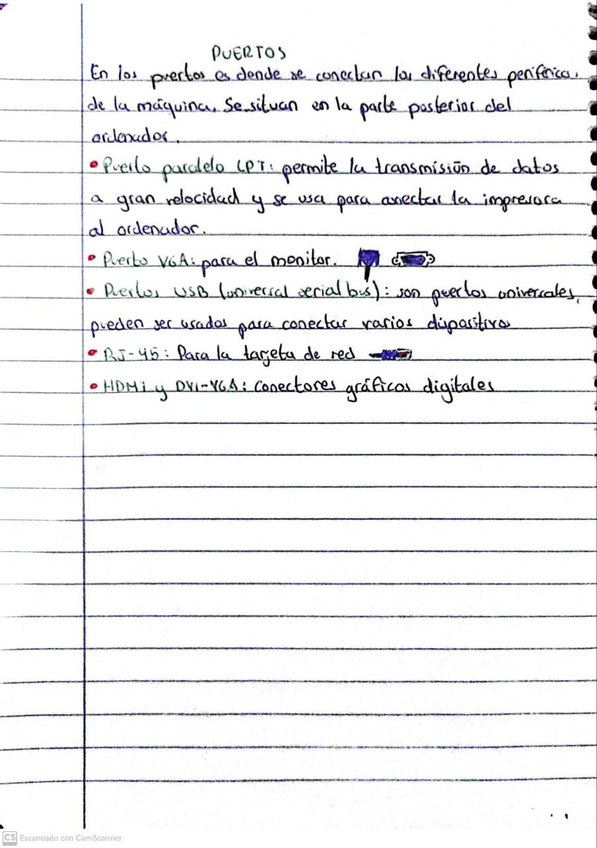 PUERTOS
En los puertos es donde se conectan los diferentes periféricos
de la máquina. Se situan en la parte posterior del
ordenador.
• Puerto paralelo LPT: permite la transmisión de datos
a gran velocidad y se usa para conectar la impresora
al ordenador.
• Puerto VGA: para el monitor.
• Puertos USB (universal serial bus): son puertos universales,
pueden ser usados para conectar varios dispositivos
• RJ-45: Para la tarjeta de red
• HDMi y DVI-VGA: conectores gráficos digitales
CS Escaneado con CamScanner